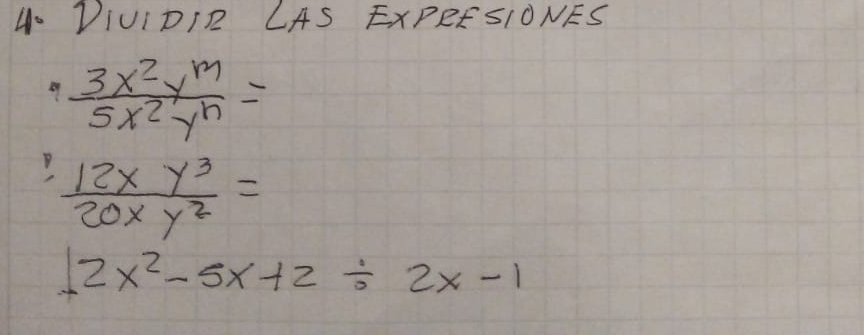 4. DIVIDIR LAS EXPRESIONES
3x² y^m / 5x² y^n =
12x y³ / 20x y² =
2x² - 5x + 2 ÷ 2x - 1